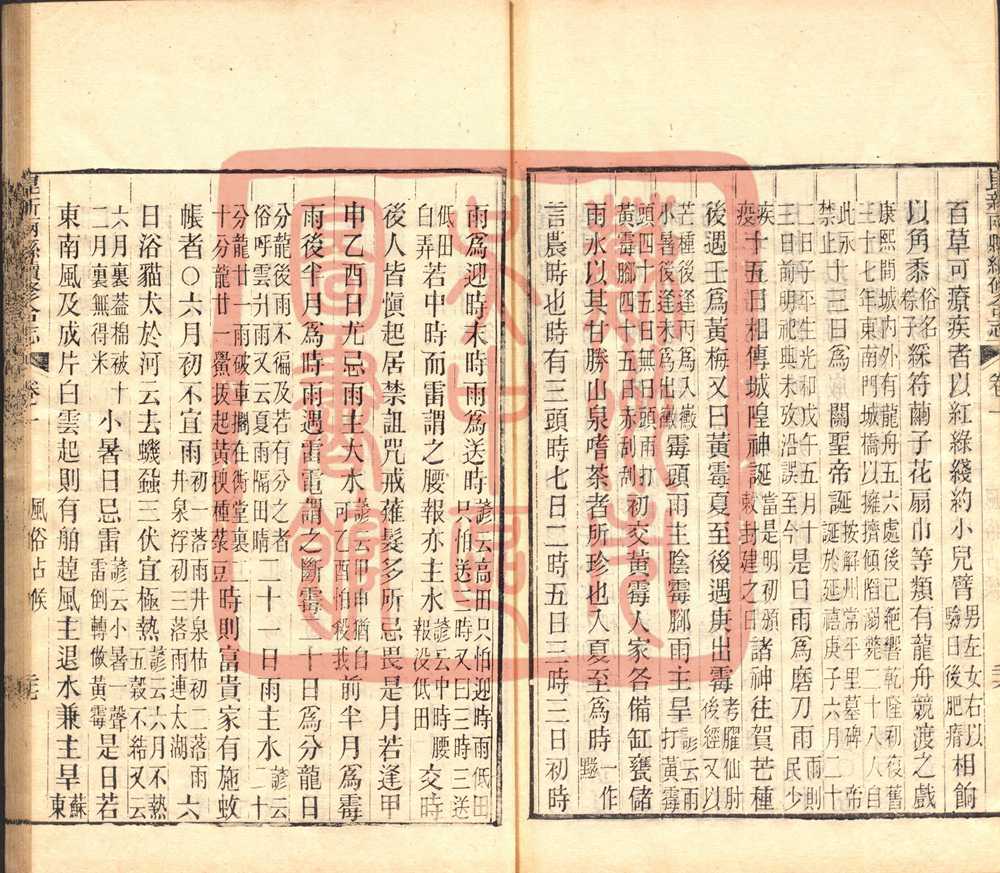 百草可療疾者以紅綠綫約小兒臂男左女右以驗日後肥瘠相餉
以角黍俗名粽子綵符繭子花扇巾等類有龍舟競渡之戲
康熙間城内外有龍舟五六處後己絕響乾隆初復舊三十七年東南門城橋以擁擠傾陷溺斃二十八人自
此永禁止十三日爲 關聖帝誕按解州常平里墓碑帝誕於延禧庚子六月二十
二日子平生光和戊午五月十三日前明祀典未攷沿誤至今是日雨爲磨刀雨雨則民少
疾疫十五日相傳城隍神誕當是明初頒敕封建之日諸神往賀芒種
後遇壬爲黃梅又曰黃霉夏至後遇庚出霉考臞仙肘後經又以
芒種後逢丙爲入黴小暑後逢未爲出黴霉頭雨主陰霉腳雨主旱諺云雨打黃霉
頭四十五日無日頭雨打黃霉腳四十五日赤刮刮初交黃霉人家各備缸甕儲
雨水以其甘勝山泉嗜茶者所珍也入夏至爲時一作
言農時也時有三頭時七日二時五日三時三日初時
雨爲迎時末時雨爲送時諺云高田只怕迎時雨低田只怕送三時又曰三時三送
低田白弄若中時而雷謂之腰報亦主水諺云中時腰報没低田交時
後人皆愼起居禁詛咒戒薙髮多所忌畏是月若逢甲
申乙酉日尤忌雨主大水諺云甲申猶自可乙酉怕殺我前半月爲霉
雨後半月爲時雨遇雷電謂之斷霉二十日爲分龍日
分龍後雨不徧及若有分之者俗呼雲升雨又云夏雨隔田晴二十一日雨主水諺云二十
分龍廿一雨破車擱在衖堂裏二十分龍廿一鱟拔起黃秧種菉豆二時則富貴家有施蚊
帳者〇六月初不宜雨初一落雨井泉枯初二落雨井泉浮初三落雨連太湖六
日浴猫犬於河云去蟣蝨三伏宜極熱諺云六月不熱五穀不結又云
六月裏葢棉被十二月裏無得米小暑日忌雷諺云小暑一聲雷倒轉做黃霉是日若
東南風及成片白雲起則有舶趠風主退水兼主旱蘇東
崑新兩縣續修合志
卷一
風俗占候